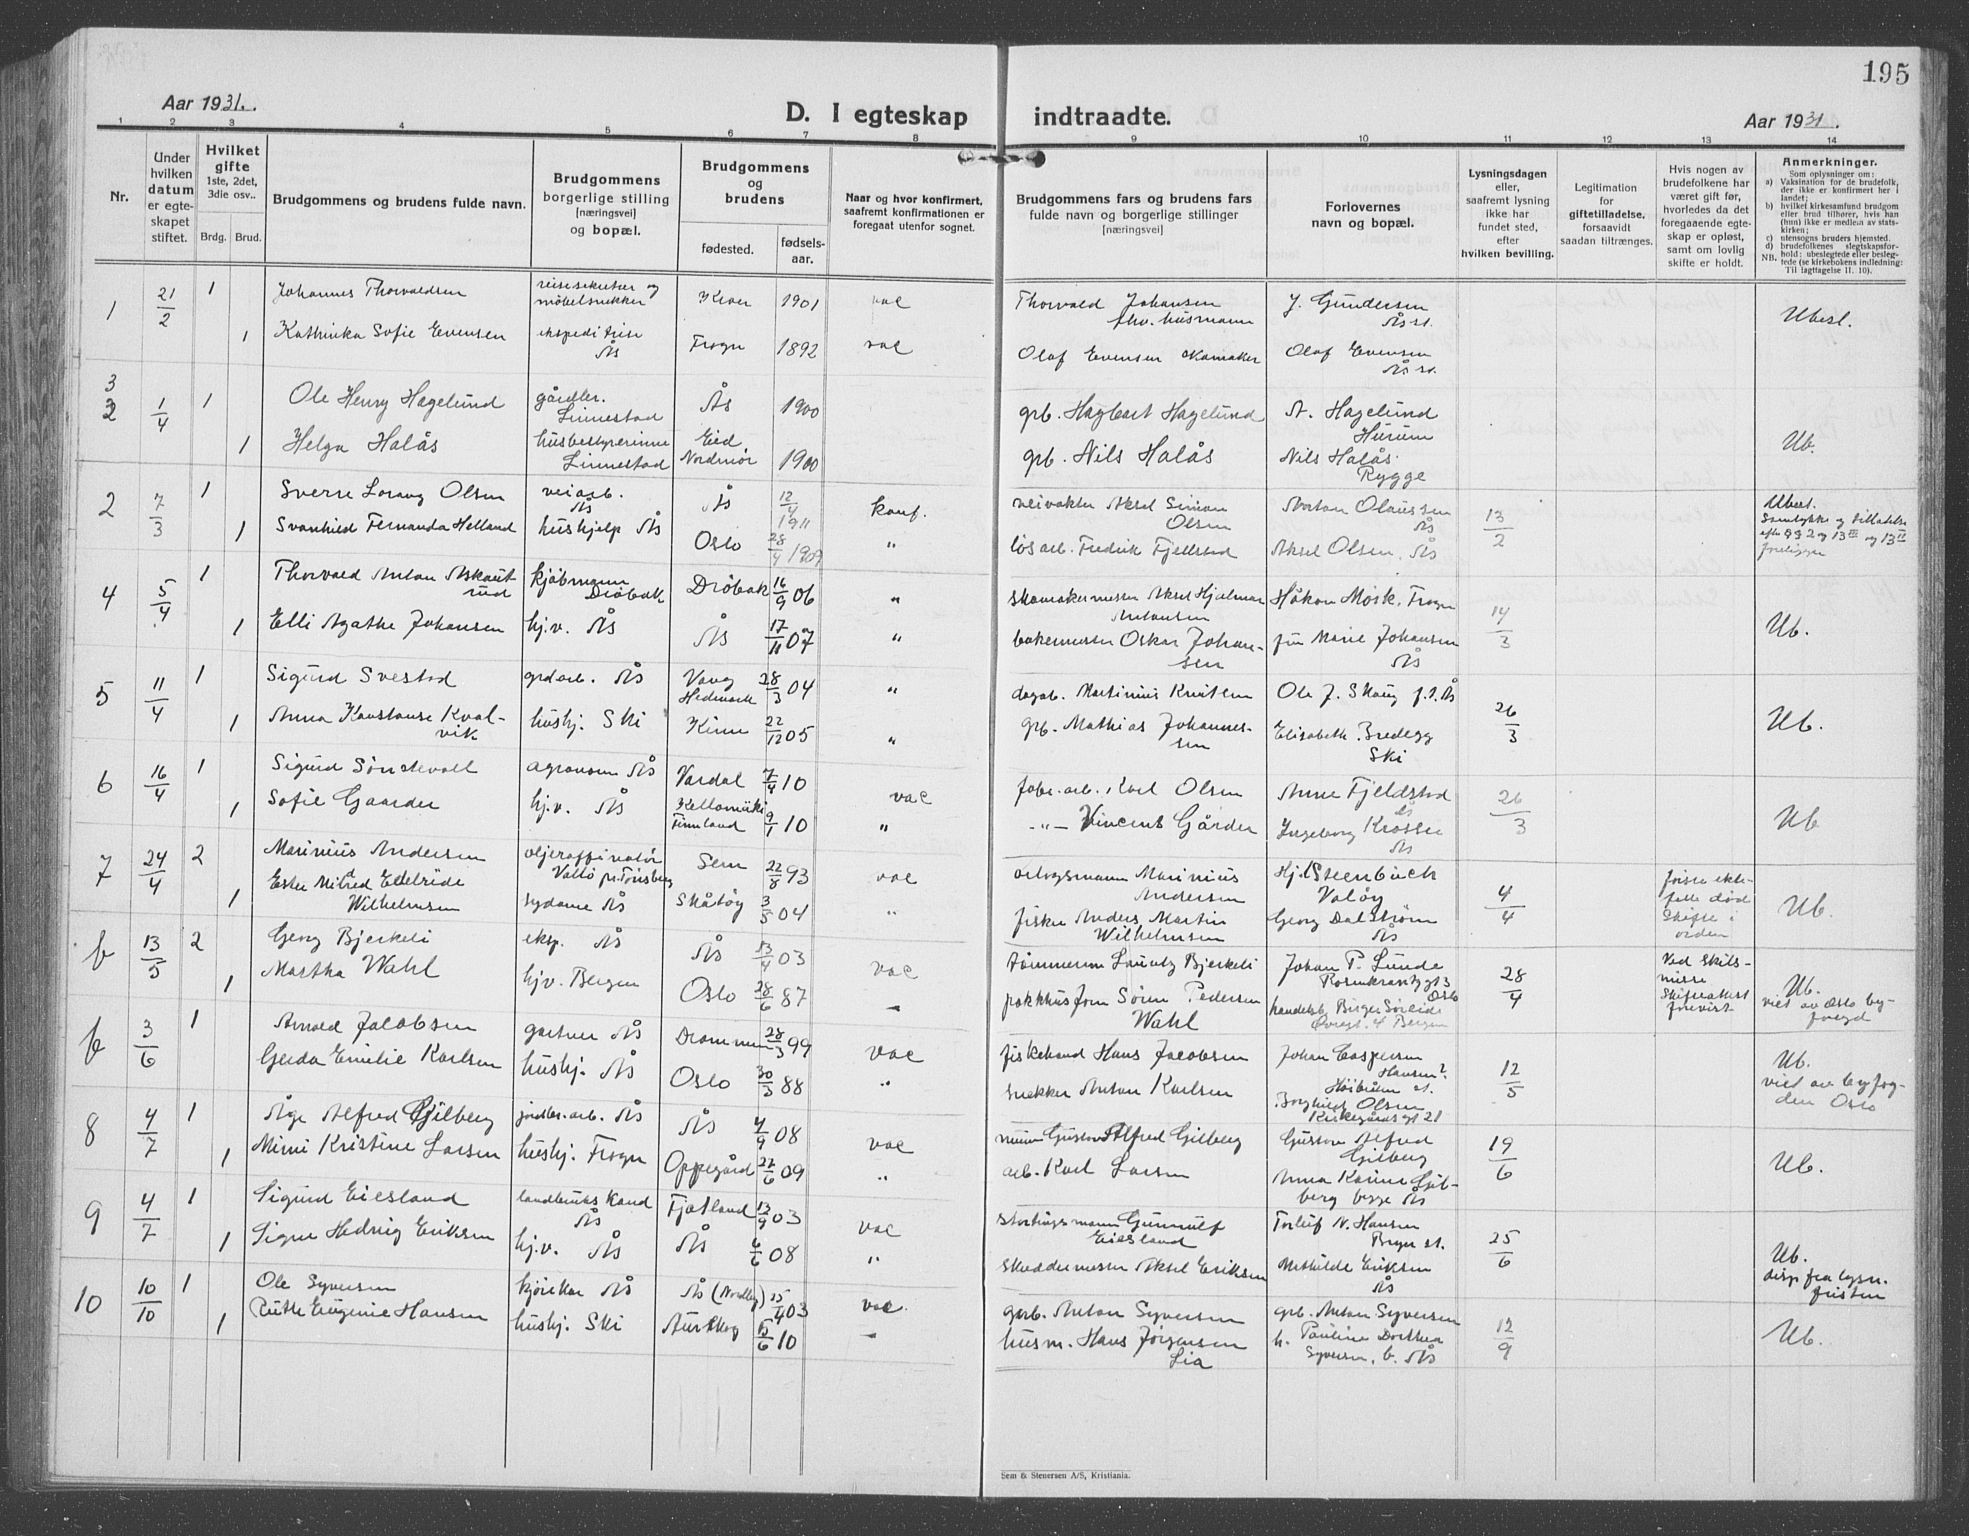 195
Aar 1931.
D. I egteskap indtraadte.
Aar 1931.
1 2 3 4 5 6 7 8 9 10 11 12 13 14
Nr.
Under hvilken datum er egteskapet stiftet.
Hvilket gifte 1ste, 2det, 3die osv..
Brdg. Brud.
Brudgommens og brudens fulde navn.
Brudgommens borgerlige stilling [næringsvei] og bopæl.
Brudgommens og brudens
fødested. fødsels-aar.
Naar og hvor konfirmert, saafremt konfirmationen er foregaat utenfor sognet.
Brudgommens fars og brudens fars fulde navn og borgerlige stillinger [næringsvei]
Forlovernes navn og bopæl.
Lysningsdagen eller, saafremt lysning ikke har fundet sted, efter hvilken bevilling.
Legitimation for giftetilladelse, forsaavidt saadan tiltrænges.
Hvis nogen av brudefolkene har været gift før, hvorledes da det foregaaende egteskap er opløst, samt om lovlig skifte er holdt.
Anmerkninger.
Som oplysning om:
a) Vaksination for de brudefolk, der ikke er konfirmert her i landet;
b) hvilket kirkesamfund brudgom eller brud tilhører, hvis han (hun) ikke er medlem av statskirken;
c) utensogns bruders hjemsted.
d) brudefolkenes slegtskapsforhold: ubeslegtede eller beslegtede (se kirkebokens indledning: Til iagttagelse II. 10).
NB.
1 21/2 1 Johannes Thorvaldsen reisesekretær og møbelsnekker Kroer 1901 vac Thorvald Johansen fhv. husmann J. Gundersen Ås st. Ubesl.
1 Kathinka Sofie Evensen ekspeditrise Ås Frogn 1892 vac Olaf Evensen skomaker Olaf Evensen Ås st.
3 1/4 1 Ole Henry Hagelund gårdbr. Linnestad Ås 1900 grb. Hagbart Hagelund N. Hagelund Hurum Ub.
1 Helga Halås husbestyrerinne Linnestad Eid Nordmør 1900 grb. Nils Halås Nils Halås Rygge
2 7/3 1 Sverre Lorang Olsen veiarb. Ås Ås 12/4 1911 konf. veivokter Aksel Simon Olsen Anton Olaussen Ås 13/2 Ubesl. Samtykke og tillatelse efter §§ 2 og 13 III og 13 II foreligger
1 Svanhild Fernanda Helland hushjelp Ås Oslo 28/4 1909 " løsarb. Fredrik Fjellstad Aksel Olsen, Ås
4 5/4 1 Thorvald Anton Askautrud kjøbmann Drøbak Drøbak 16/9 06 " skomakermester Aksel Hjalmar Antonsen Håkon Mosk, Frogn 14/3 Ub.
1 Elli Agathe Johansen hj.v. Ås Ås 17/11 07 " bakermester Oskar Johansen fru Marie Johansen Ås
5 11/4 1 Sigurd Svestad grdarb. Ås Vang Hedmark 28/3 04 " dagarb. Martinius Knutsen Ole J. Skaug f.t. Ås 26/3 Ub.
1 Anna Konstanse Kvalvik hushj. Ski Kinn 22/12 05 " grb. Mathias Johannessen Elisabeth Bredegg Ski
6 16/4 1 Sigurd Sønstevoll agronom Ås Vardal 7/4 10 vac fabr. arb. Karl Olsen Anne Fjeldstad Ås 26/3 Ub
1 Sofie Gaarder hj.v. Ås Kellomäki Finnland 9/1 10 " -"- Vincent Gårder Ingeborg Krosse Ås
7 24/4 2 Marinius Andersen oljeraffinatør Vallø pr. Tønsberg Sem 22/8 93 vac orlogsmann Marinius Andersen Hj. Steenbuch Valøy 4/4 første ektefelle død Skifte i orden Ub.
1 Ester Mildred Edelride Wilhelmsen sydame Ås Skåtøy 3/5 04 " fisker Anders Martin Wilhelmsen Georg Dalstrøm Ås
b 13/5 2 Georg Bjerkeli eksp. Ås Ås 13/4 03 vac tømmerm Lauritz Bjerkeli Johan P. Lunde Rosenkrantzgt 3 Oslo 28/4 Ved skilsmisse Skifteattest forevist Ub. viet av Oslo byfogd
1 Martha Wahl hj.v. Bergen Oslo 28/6 87 " pakkhusform Søren Pedersen Wahl handelsb. Birger Sørlide Øvregt. 4 Bergen
b 3/6 1 Arnold Jacobsen gartner Ås Drammen 28/3 99 vac fiskehand Hans Jacobsen Johan Caspersen Hansen? Høibråten st. 12/5 Ub. viet av byfogden Oslo
Gerda Emilie Karlsen hushj. Ås Oslo 30/3 88 " snekker Anton Karlsen Borghild Olsen Kirkegårdsgt 21
8 4/7 1 Åge Alfred Gjilberg jordbr.arb. Ås Ås 4/9 08 vac murer Gustav Alfred Gjilberg Gustav Alfred Gjilberg 19/6 Ub.
1 Mimi Kristine Larsen hushj. Frogn Oppegård 27/6 09 " arb. Karl Larsen Anna Karine Gjilberg begge Ås
9 4/7 1 Sigurd Eiesland landbruks kand Ås Fjotland 13/9 03 vac stortingsmann Gunnulf Eiesland Torleif N. Hansen Bryn st. 25/6 Ub. disp fra lysn. fristen
1 Signe Hedvig Eriksen hj.v. Ås Ås 6/6 08 " skreddermester Aksel Eriksen Mathilde Eriksen Ås
10 10/10 1 Ole Syversen kjørekar Ås Ås (Nordby) 15/4 03 vac. grb. Anton Syversen grb. Anton Syversen 12/9 Ub.
1 Ruth Eugenie Hansen hushj. Ski Aurskog 15/6 10 " husm. Hans Jørgensen Lia h. Pauline Dorthea Syversen, b. Ås
Sem & Stenersen A/S, Kristiania.